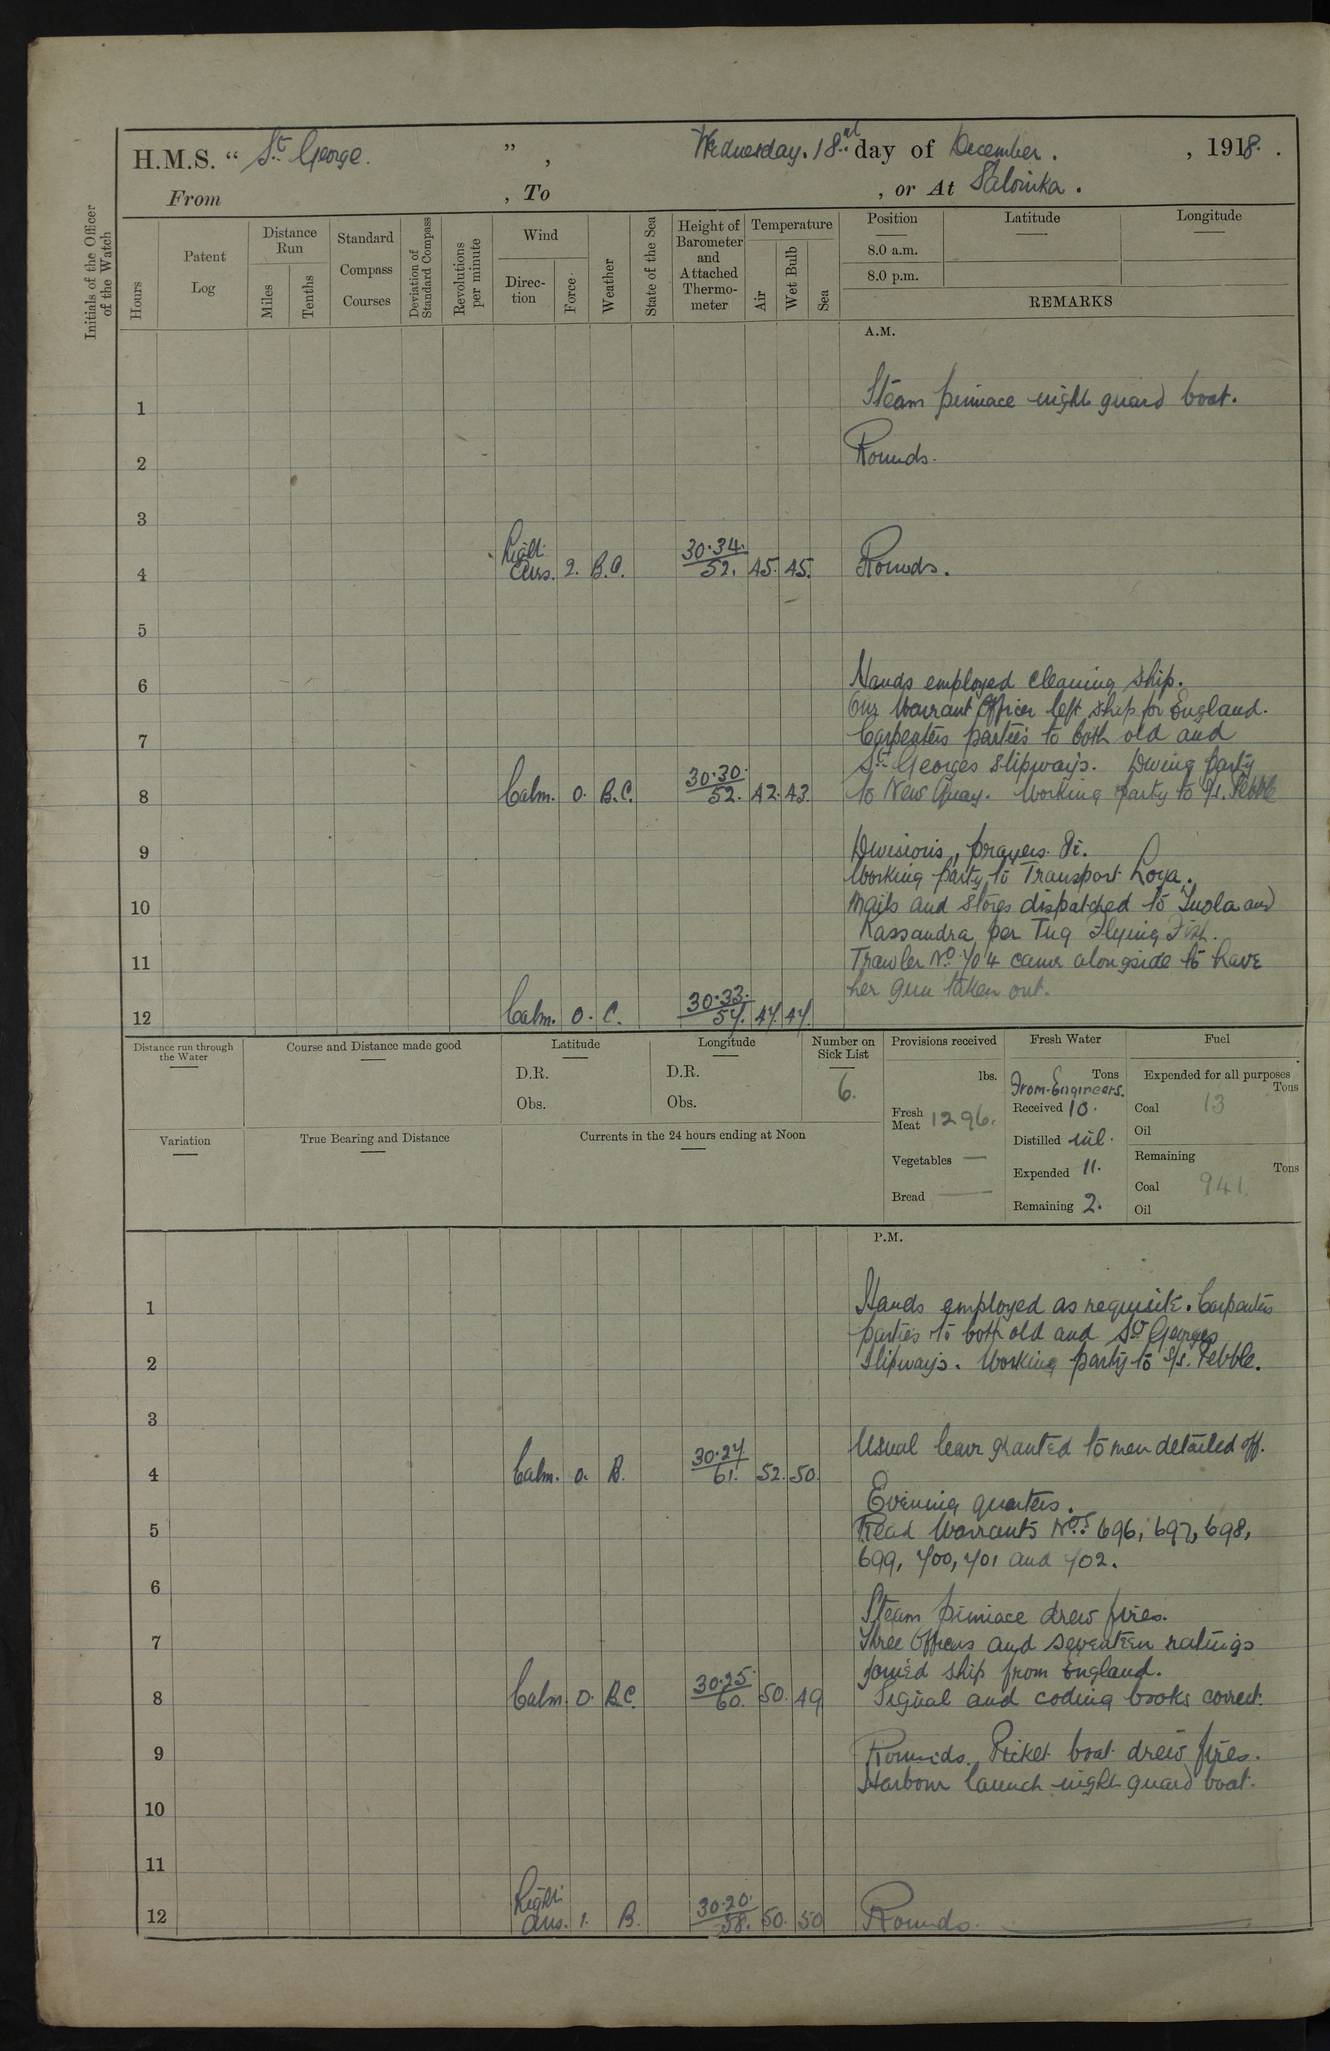 H.M.S. “ St. George. ” , Wednesday. 18th day of December. , 1918. .
From , To , or At Salonika.
Initials of the Officer of the Watch
Hours
Patent Log
Distance Run
Miles
Tenths
Standard Compass Courses
Deviation of Standard Compass
Revolutions per minute
Wind
Direction
Force
Weather
State of the Sea
Height of Barometer and Attached Thermometer
Temperature
Air
Wet Bulb
Sea
Position Latitude Longitude
8.0 a.m.
8.0 p.m.
REMARKS
A.M.
1 Steam pinnace night guard boat.
2 Rounds.
3
4 Light airs. 2. B.C. 30.34. 52. 45. 45. Rounds.
5
6 Hands employed cleaning ship.
One Warrant Officer left ship for England.
7 Carpenters parties to both old and
St. Georges slipways. Diving party
8 Calm. 0. B.C. 30.30. 52. 42. 43. to New Quay. Working party to S/s. Pebble
9 Divisions, prayers &c.
Working party to Transport Loya.
10 Mails and stores dispatched to and
Kassandra per Tug Flying Fish.
11 Trawler No. 704 came alongside to have
her gun taken out.
12 Calm. 0. C. 30.33. 57. 47. 47.
Distance run through the Water
Course and Distance made good
Latitude
D.R.
Obs.
Longitude
D.R.
Obs.
Number on Sick List
6.
Provisions received
lbs.
Fresh Meat 1296.
Vegetables —
Bread —
Fresh Water
Tons
From Engineers.
Received 10.
Distilled nil.
Expended 11.
Remaining 2.
Fuel
Expended for all purposes
Tons
Coal 13
Oil
Remaining
Tons
Coal 941
Oil
Variation
True Bearing and Distance
Currents in the 24 hours ending at Noon
P.M.
1 Hands employed as requisite. Carpenters
parties to both old and St. Georges
2 slipways. Working party to S/s. Pebble.
3
Usual leave granted to men detailed off.
4 Calm. 0. B. 30.27. 61. 52. 50.
Evening quarters.
5 Read Warrants Nos. 696, 697, 698,
699, 700, 701 and 702.
6
Steam pinnace drew fires.
7 Three Officers and seventeen ratings
joined ship from England.
8 Calm 0. B.C. 30.25. 60. 50. 49 Signal and coding books correct.
9 Rounds. Picket boat drew fires.
Harbour launch night guard boat.
10
11
12 Light airs. 1. B. 30.20. 58. 50. 50 Rounds.